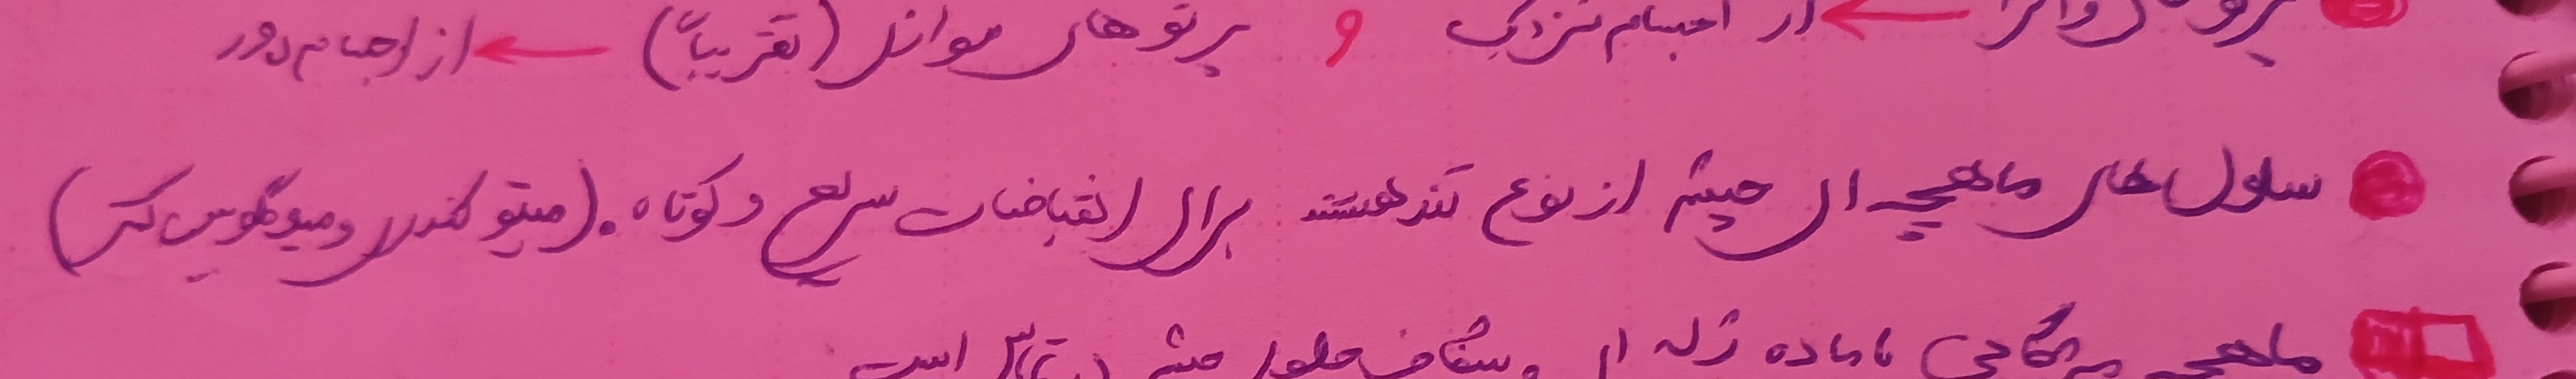 پرتوهای واگرا ← از اجسام نزدیک و پرتوهای موازی (تقریباً) ← از اجسام دور
سلول‌های ماهیچه‌ای چشم از نوع تند هستند برای انقباضات سریع و کوتاه. (میتوکندری و میوگلوبین کمتر)
ماهیچه مژگانی با ماده ژله‌ای و شفاف جلوی چشم در تماس است